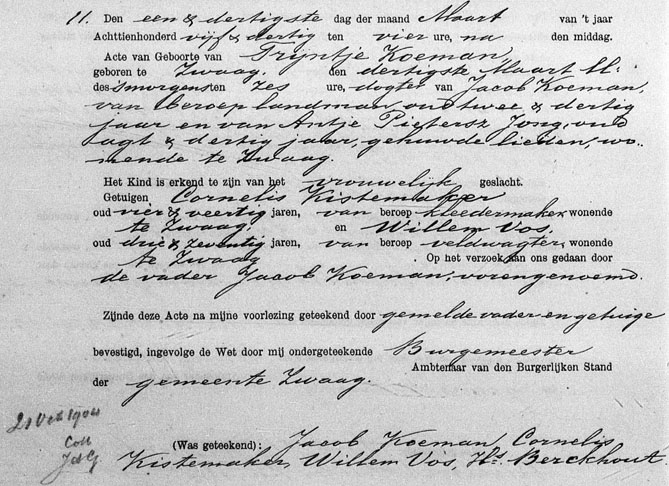 11. Den een & dertigste dag der maand Maart van 't jaar
Achttienhonderd vijf & dertig ten vier ure, na den middag.
Acte van Geboorte van Trijntje Koeman,
geboren te Zwaag. den dertigste Maart ll:
des smorgens ten zes ure, dogter van Jacob Koeman,
van beroep landman, oud twee & dertig
jaar en van Antje Pietersz Jong, oud
agt & dertig jaar, gehuwde lieden, wo..
nende te Zwaag.
Het Kind is erkend te zijn van het vrouwelijk geslacht.
Getuigen Cornelis Kistemaker
oud vier & veertig jaren, van beroep kleedermaker, wonende
te Zwaag. en Willem Vos,
oud drie & zeventig jaren, van beroep veldwagter, wonende
te Zwaag . Op het verzoek aan ons gedaan door
de vader Jacob Koeman, vorengenoemd.
Zijnde deze Acte na mijne voorlezing geteekend door gemelde vader en getuige
bevestigd, ingevolge de Wet door mij ondergeteekende Burgemeester
Ambtenaar van den Burgerlijken Stand
der gemeente Zwaag.
21 Oct 1904
Coll
JdG
(Was geteekend): Jacob Koeman, Cornelis
Kistemaker, Willem Vos, Hs. Berckhout.